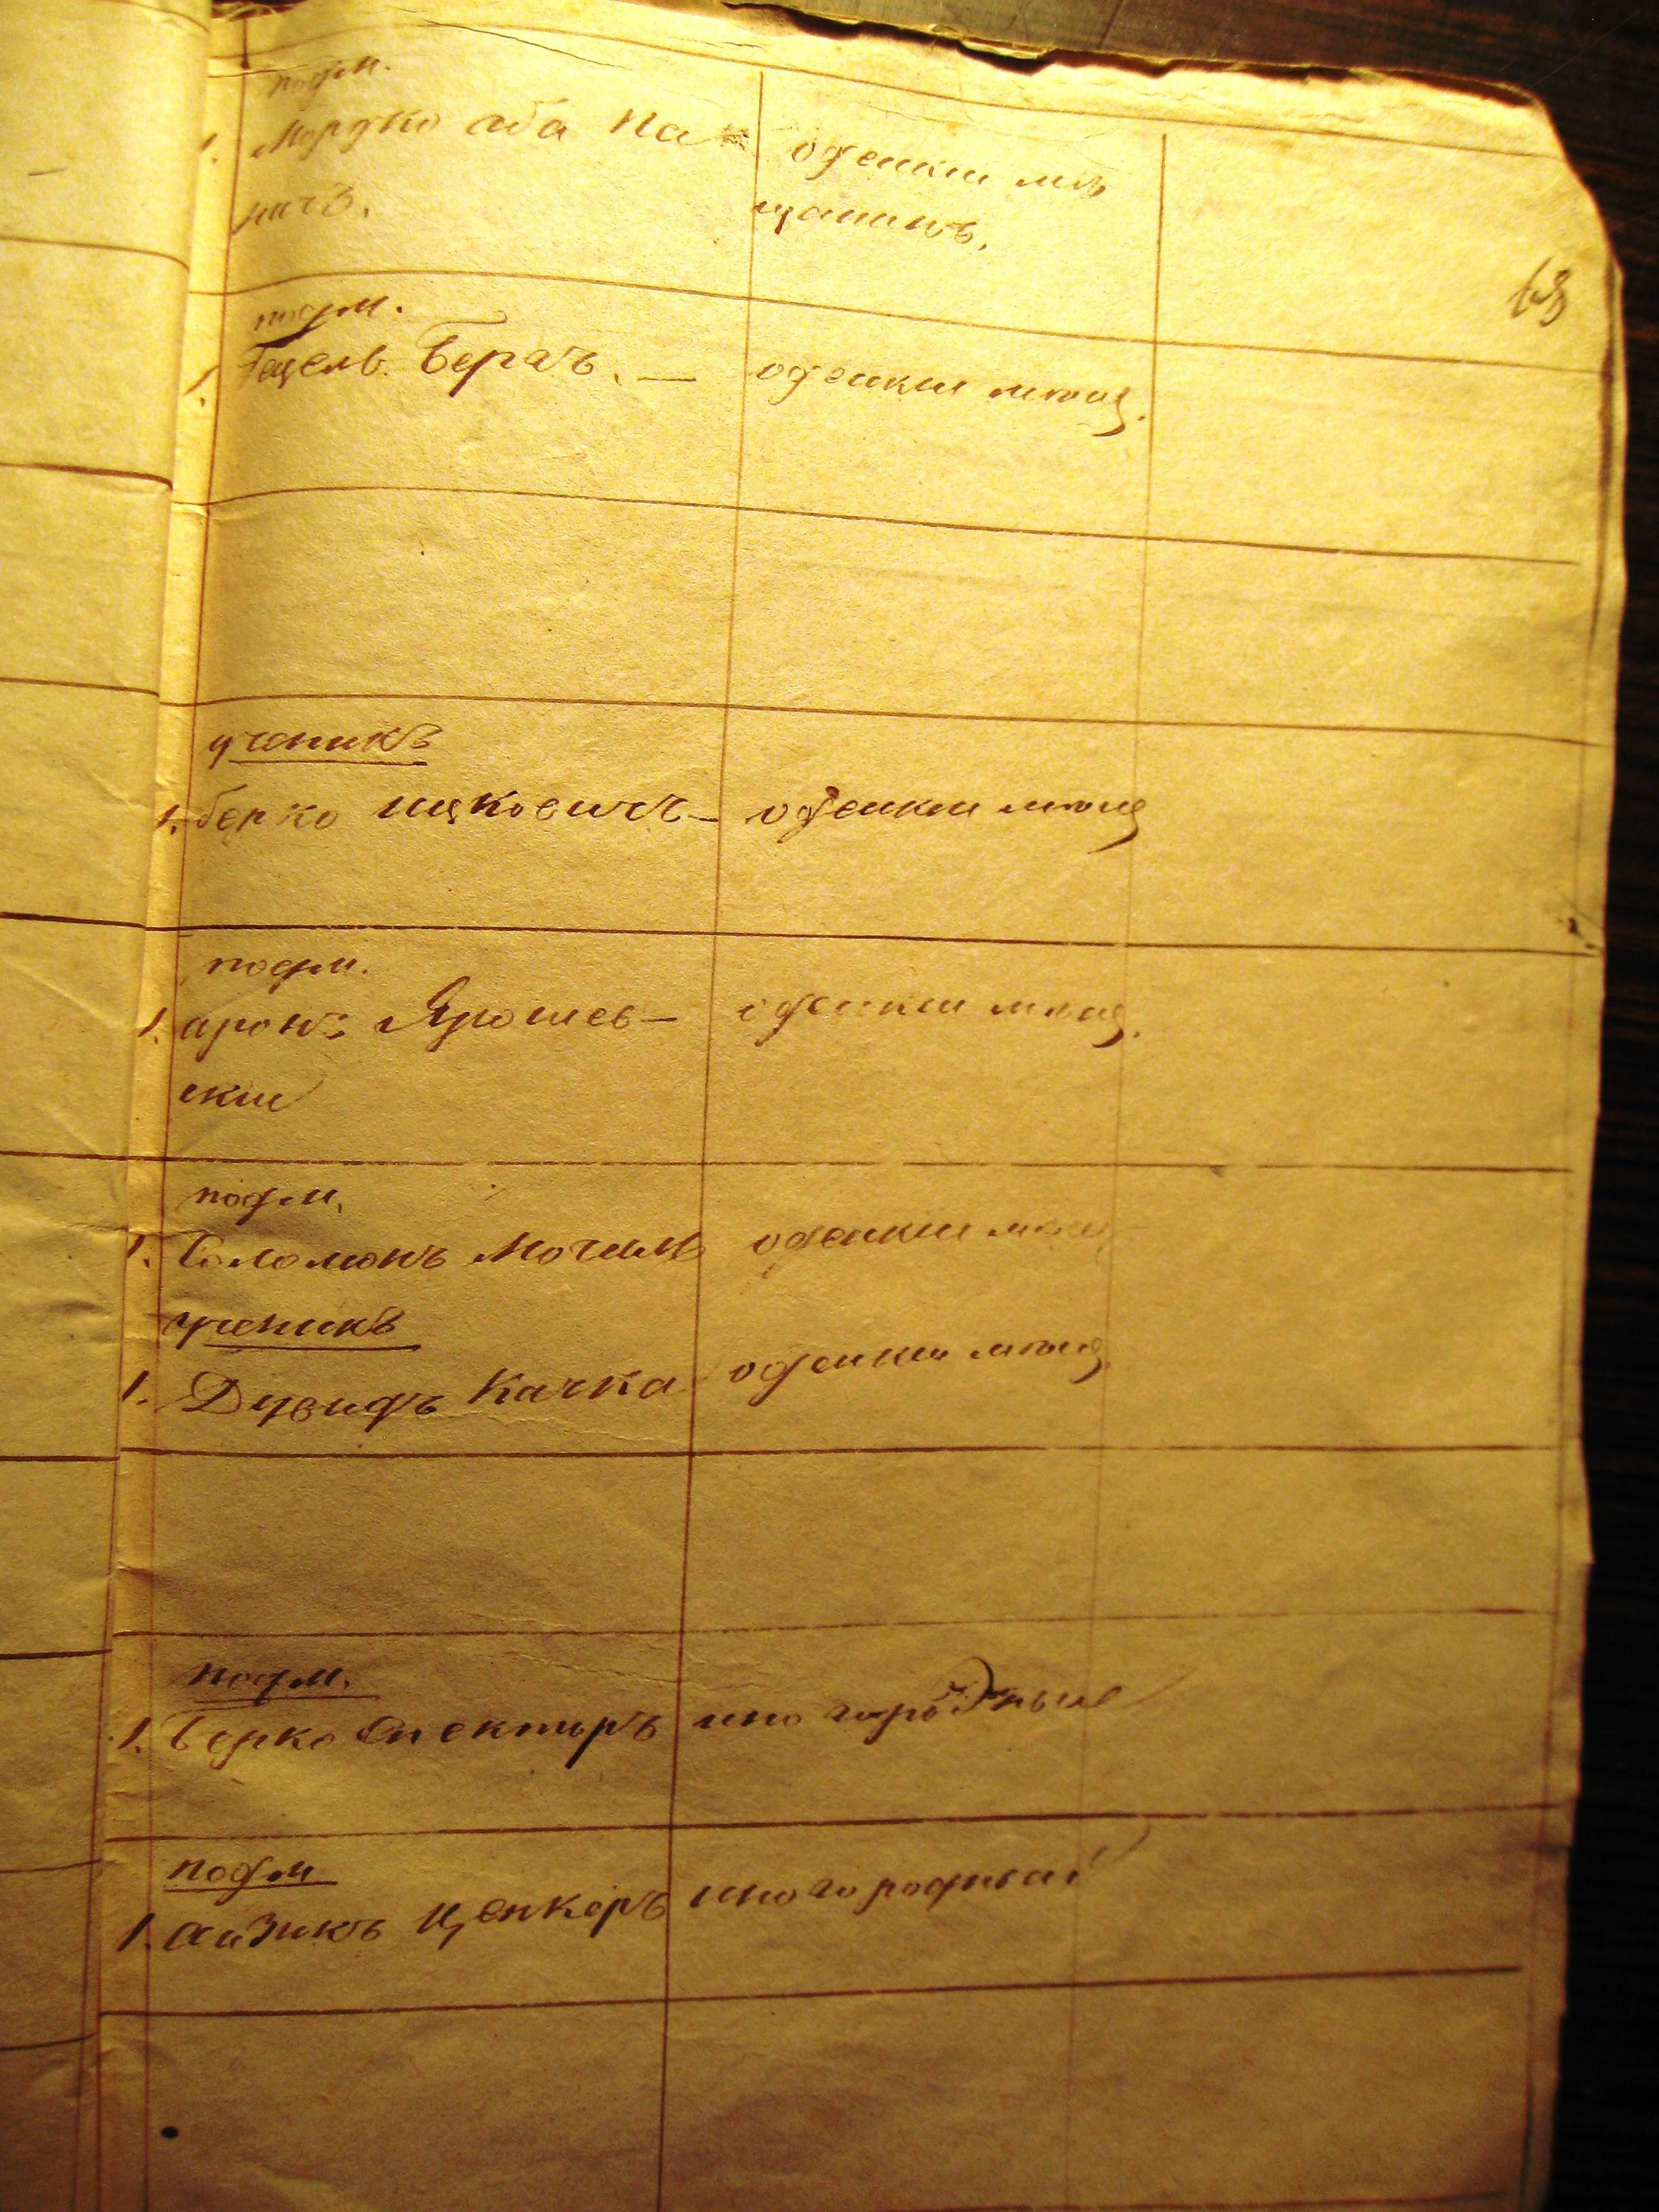 подм.
1. Мордко аба На одескии мѣ
ничъ. щанинъ.
63
подм.
1. Гецель Берачъ. — одескии мѣщ.
ученикъ
1. берко ицковичъ — одескии мѣщ
подм.
1. аронъ Ярошев— одескии мѣщ.
скии
подм.
1. Соломонъ Могиль одескии мѣщ
ученикъ
1. Дувидъ Качка одескии мѣщ.
подм.
1. Берко Спекторъ иногородные
подм
1. Аизикъ Ценкеръ иногородныи